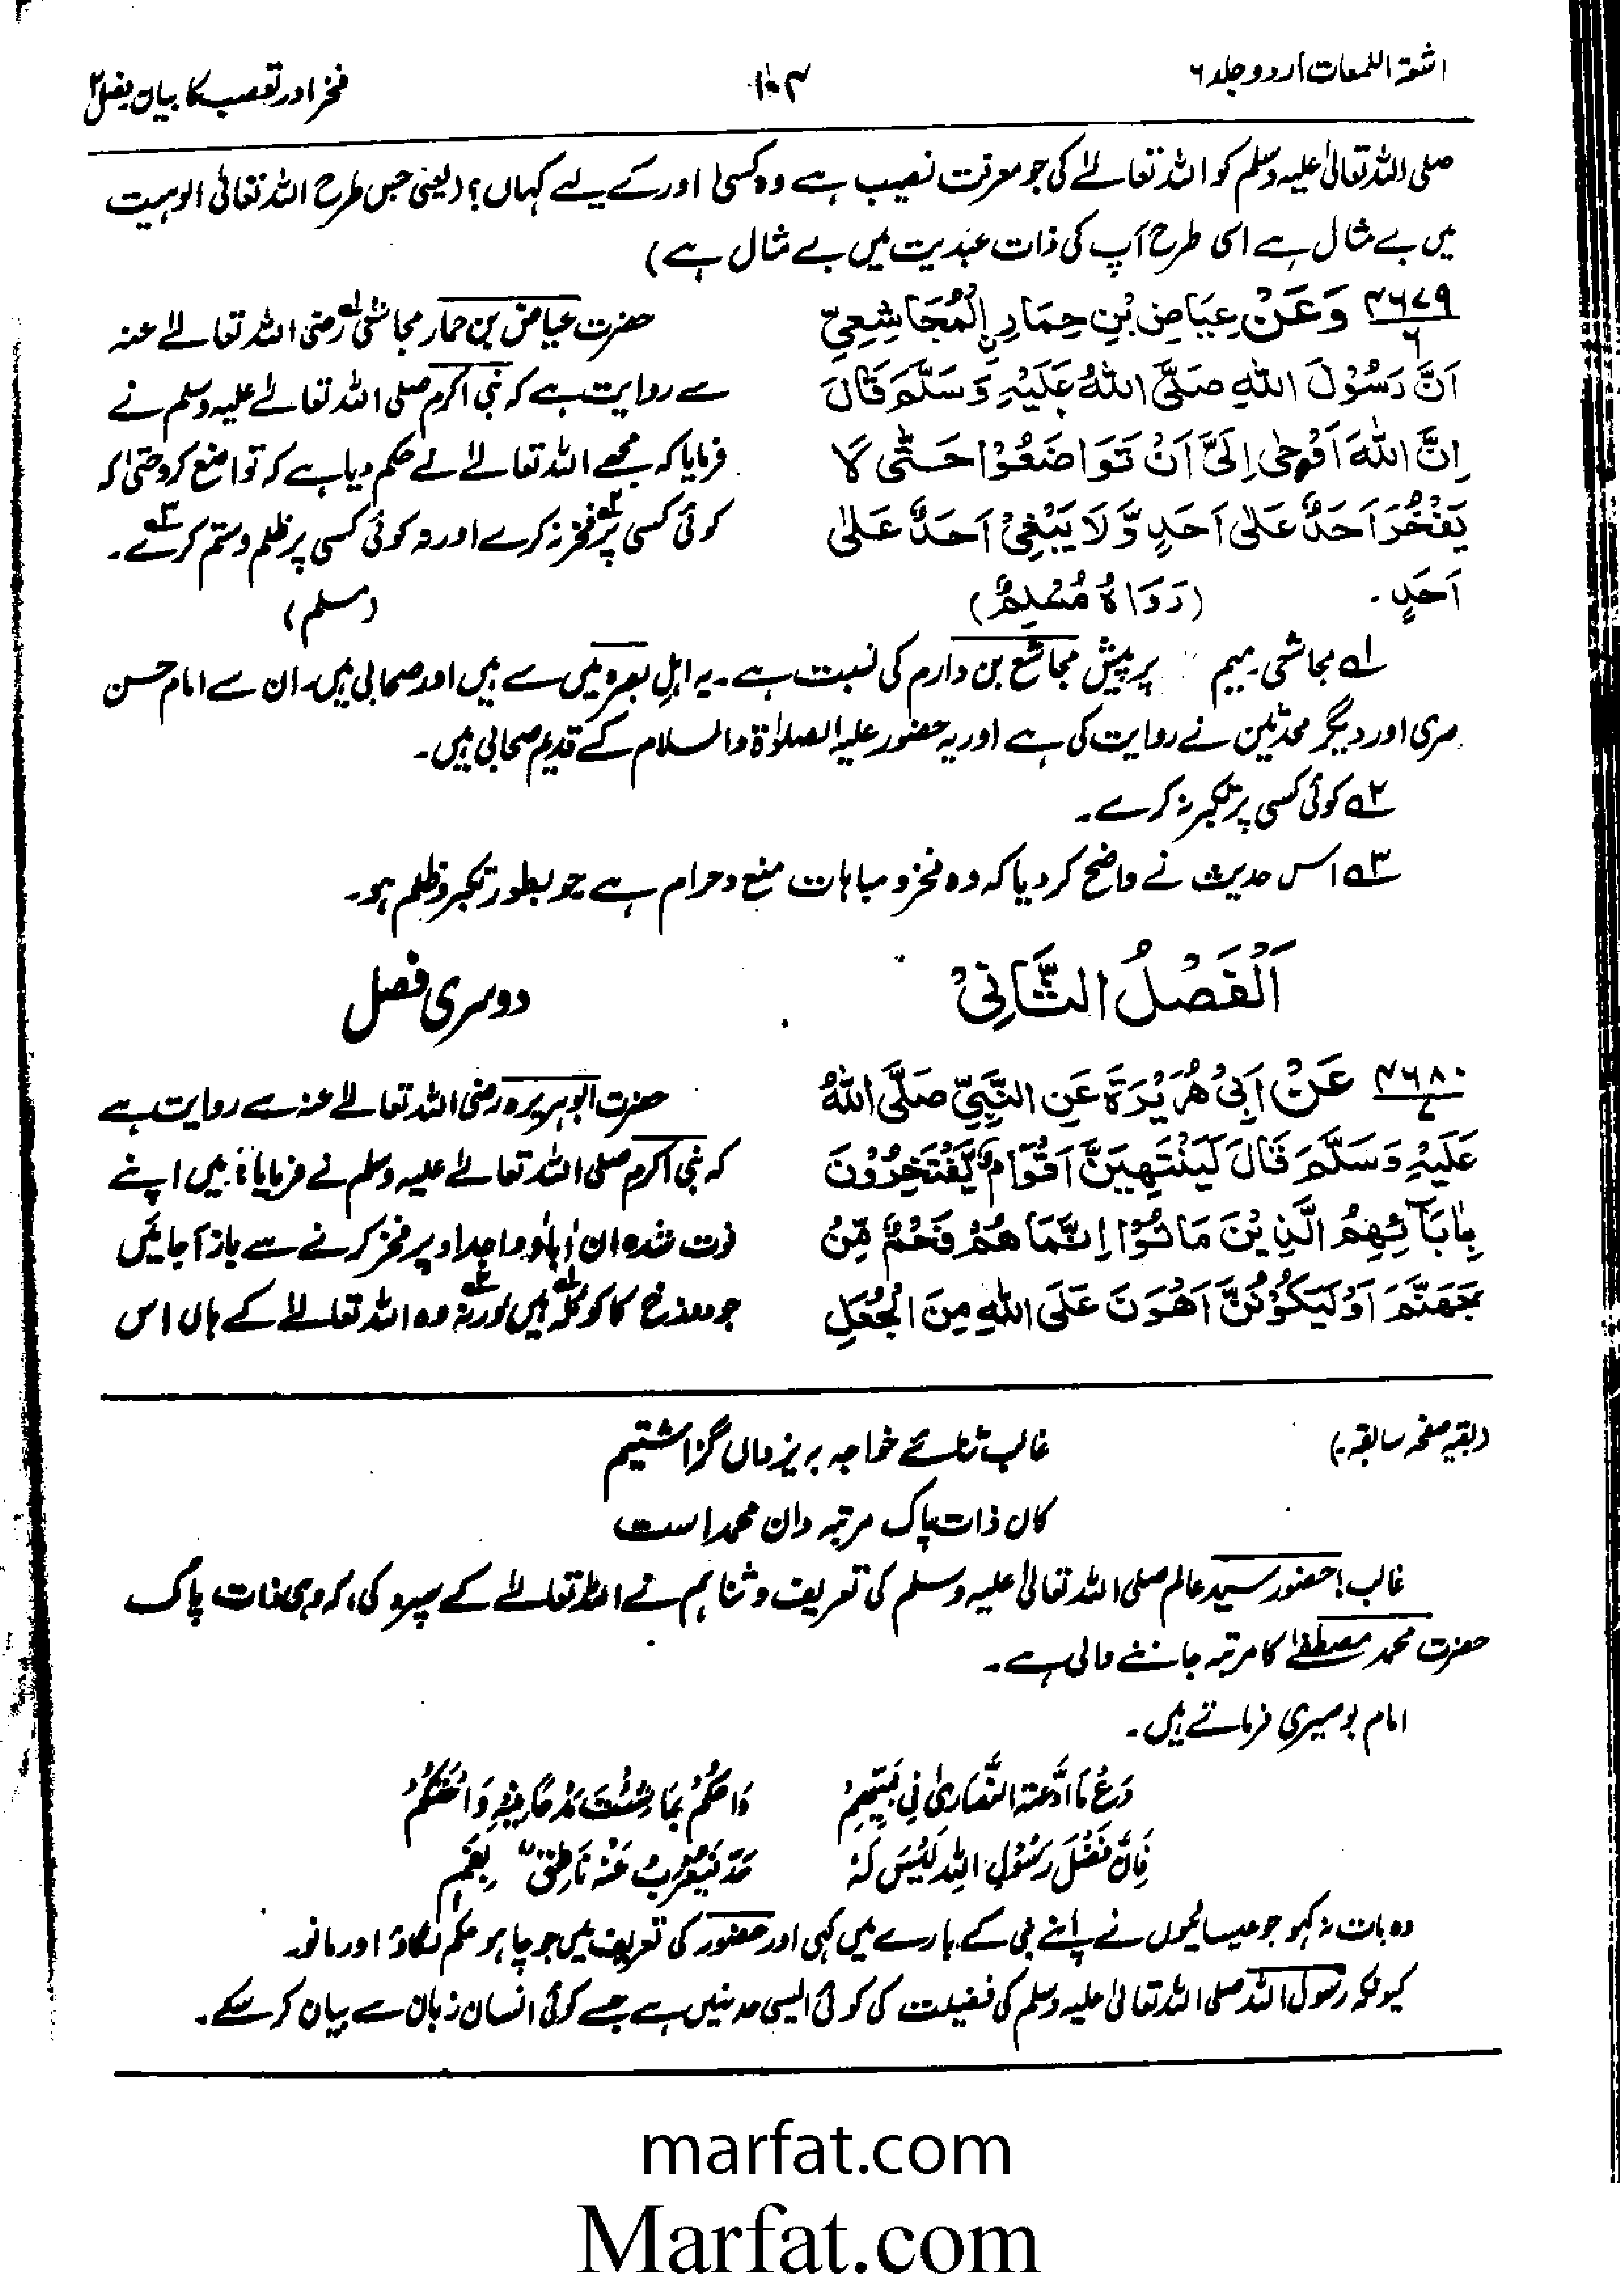 اشعۃ اللمعات اردو جلد ۶
۱۰۴
فخر اور تعصب کا بیان فصل ۲
صلی اللہ تعالیٰ علیہ وسلم کو اللہ تعالےٰ کی جو معرفت نصیب ہے وہ کسی اور کے لیے کہاں؟ (یعنی جس طرح اللہ تعالیٰ الوہیت
میں بے مثال ہے اسی طرح آپ کی ذات عبدیت میں بے مثال ہے)
۴۶۷۹/۶ وَعَنْ عِيَاضِ بْنِ حِمَارِ نِ الْمُجَاشِعِيِّ
اَنَّ رَسُوْلَ اللهِ صَلَّى اللهُ عَلَيْهِ وَسَلَّمَ قَالَ
اِنَّ اللهَ اَوْحٰى اِلَىَّ اَنْ تَوَاضَعُوْا حَتّٰى لَا
يَفْخُرَ اَحَدٌ عَلٰى اَحَدٍ وَّلَا يَبْغِىْ اَحَدٌ عَلٰى
اَحَدٍ ۔ (رَوَاهُ مُسْلِمٌ)
حضرت عیاض بن حمار مجاشی ۱؎ رضی اللہ تعالےٰ عنہ
سے روایت ہے کہ نبی اکرم صلی اللہ تعالےٰ علیہ وسلم نے
فرمایا کہ مجھے اللہ تعالےٰ نے حکم دیا ہے کہ تواضع کرو حتیٰ کہ
کوئی کسی پر ۲؎ فخر نہ کرے اور نہ کوئی کسی پر ظلم وستم کرے ۳؎۔
(مسلم)
۱؎ مجاشی۔ میم پر پیش مجاشع بن دارم کی نسبت ہے۔ یہ اہلِ بصرہ میں سے ہیں اور صحابی ہیں۔ ان سے امام حسن
صری اور دیگر محدثین نے روایت کی ہے اور یہ حضور علیہ الصلوٰۃ والسلام کے قدیم صحابی ہیں۔
۲؎ کوئی کسی پر تکبر نہ کرے۔
۳؎ اس حدیث نے واضح کر دیا کہ وہ فخر و مباہات منع و حرام ہے جو بطور تکبر و ظلم ہو۔
اَلْفَصْلُ الثَّانِىْ
دوسری فصل
۴۶۸۰/۷ عَنْ اَبِىْ هُرَيْرَةَ عَنِ النَّبِيِّ صَلَّى اللهُ
عَلَيْهِ وَسَلَّمَ قَالَ لَيَنْتَهِيَنَّ اَقْوَامٌ يَّفْتَخِرُوْنَ
بِاٰبَآئِهِمُ الَّذِيْنَ مَاتُوْا اِنَّمَا هُمْ فَحْمٌ مِّنْ
جَهَنَّمَ اَوْ لَيَكُوْنُنَّ اَهْوَنَ عَلَى اللهِ مِنَ الْجُعَلِ
حضرت ابوہریرہ رضی اللہ تعالےٰ عنہ سے روایت ہے
کہ نبی اکرم صلی اللہ تعالےٰ علیہ وسلم نے فرمایا: ہیں اپنے
فوت شدہ ان آباؤ و اجداد پر فخر کرنے سے باز آجائیں
جو دوزخ کا کوئلہ ۱؎ ہیں ورنہ ۲؎ وہ اللہ تعالےٰ کے ہاں اس
(بقیہ صفحہ سابقہ۔)
غالب ثنائے خواجہ بر یزداں گزاشتیم
کاں ذات پاک مرتبہ دان محمد است
غالب! حضور سید عالم صلی اللہ تعالیٰ علیہ وسلم کی تعریف و ثنا ہم نے اللہ تعالےٰ کے سپرد کی، کہ وہی ذات پاک
حضرت محمد مصطفےٰ کا مرتبہ جاننے والی ہے۔
امام بوصیری فرماتے ہیں۔
دَعْ مَا ادَّعَتْهُ النَّصَارٰى فِي نَبِيِّهِمْ وَاحْكُمْ بِمَا شِئْتَ مَدْحًا فِيْهِ وَاحْتَكِمْ
فَاِنَّ فَضْلَ رَسُوْلِ اللهِ لَيْسَ لَهٗ حَدٌّ فَيُعْرِبُ عَنْهُ نَاطِقٌ بِفَمِ
وہ بات نہ کہو جو عیسائیوں نے اپنے نبی کے بارے میں کہی اور حضور کی تعریف میں جو چاہو حکم لگاؤ اور مانو
کیونکہ رسول اللہ صلی اللہ تعالیٰ علیہ وسلم کی فضیلت کی کوئی ایسی حد نہیں ہے جسے کوئی انسان زبان سے بیان کر سکے۔
marfat.com
Marfat.com